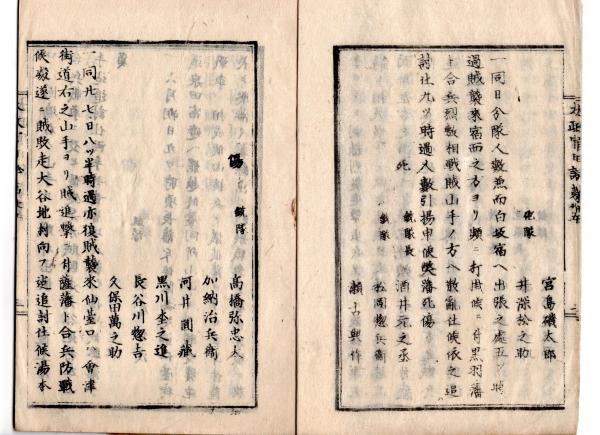 宮島磯太郎
砲隊　井深松之助
一同日分隊人數無而白坂宿ヘ出張之處五ツ時
過賊襲來宿西之方ヨリ頻ニ打掛候ニ付黒羽藩
ト合兵烈敷相戰賊山手ノ方ヘ散亂仕候依之追
討仕九ツ時過人數引揚申候弊藩死傷
死
銃隊長　酒井元之丞
銃隊　松岡惣兵衛
瀬古與作
傷
銃隊　髙橋弥忠太
加納治兵衛
河井圓藏
黒川本之進
長谷川惣吉
久保甲萬之助
一同廿七日八ツ半時過亦復賊襲來仙臺口會津
街道右之山手ヨリ賊進撃ニ付薩藩ト合兵防戰
候處遂ニ賊敗走大谷地村向フ迄追討仕候湯本